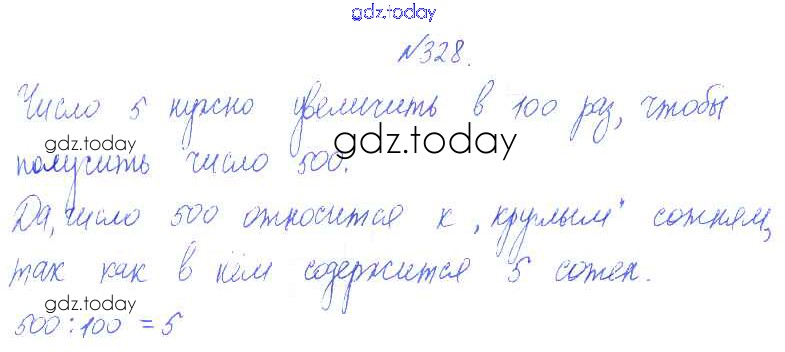 gdz.today
№328.
Число 5 нужно увеличить в 100 раз, чтобы
gdz.today
gdz.today
получить число 500.
Да, число 500 относится к „круглым" сотням,
так как в нём содержится 5 сотен.
gdz.today
500:100=5